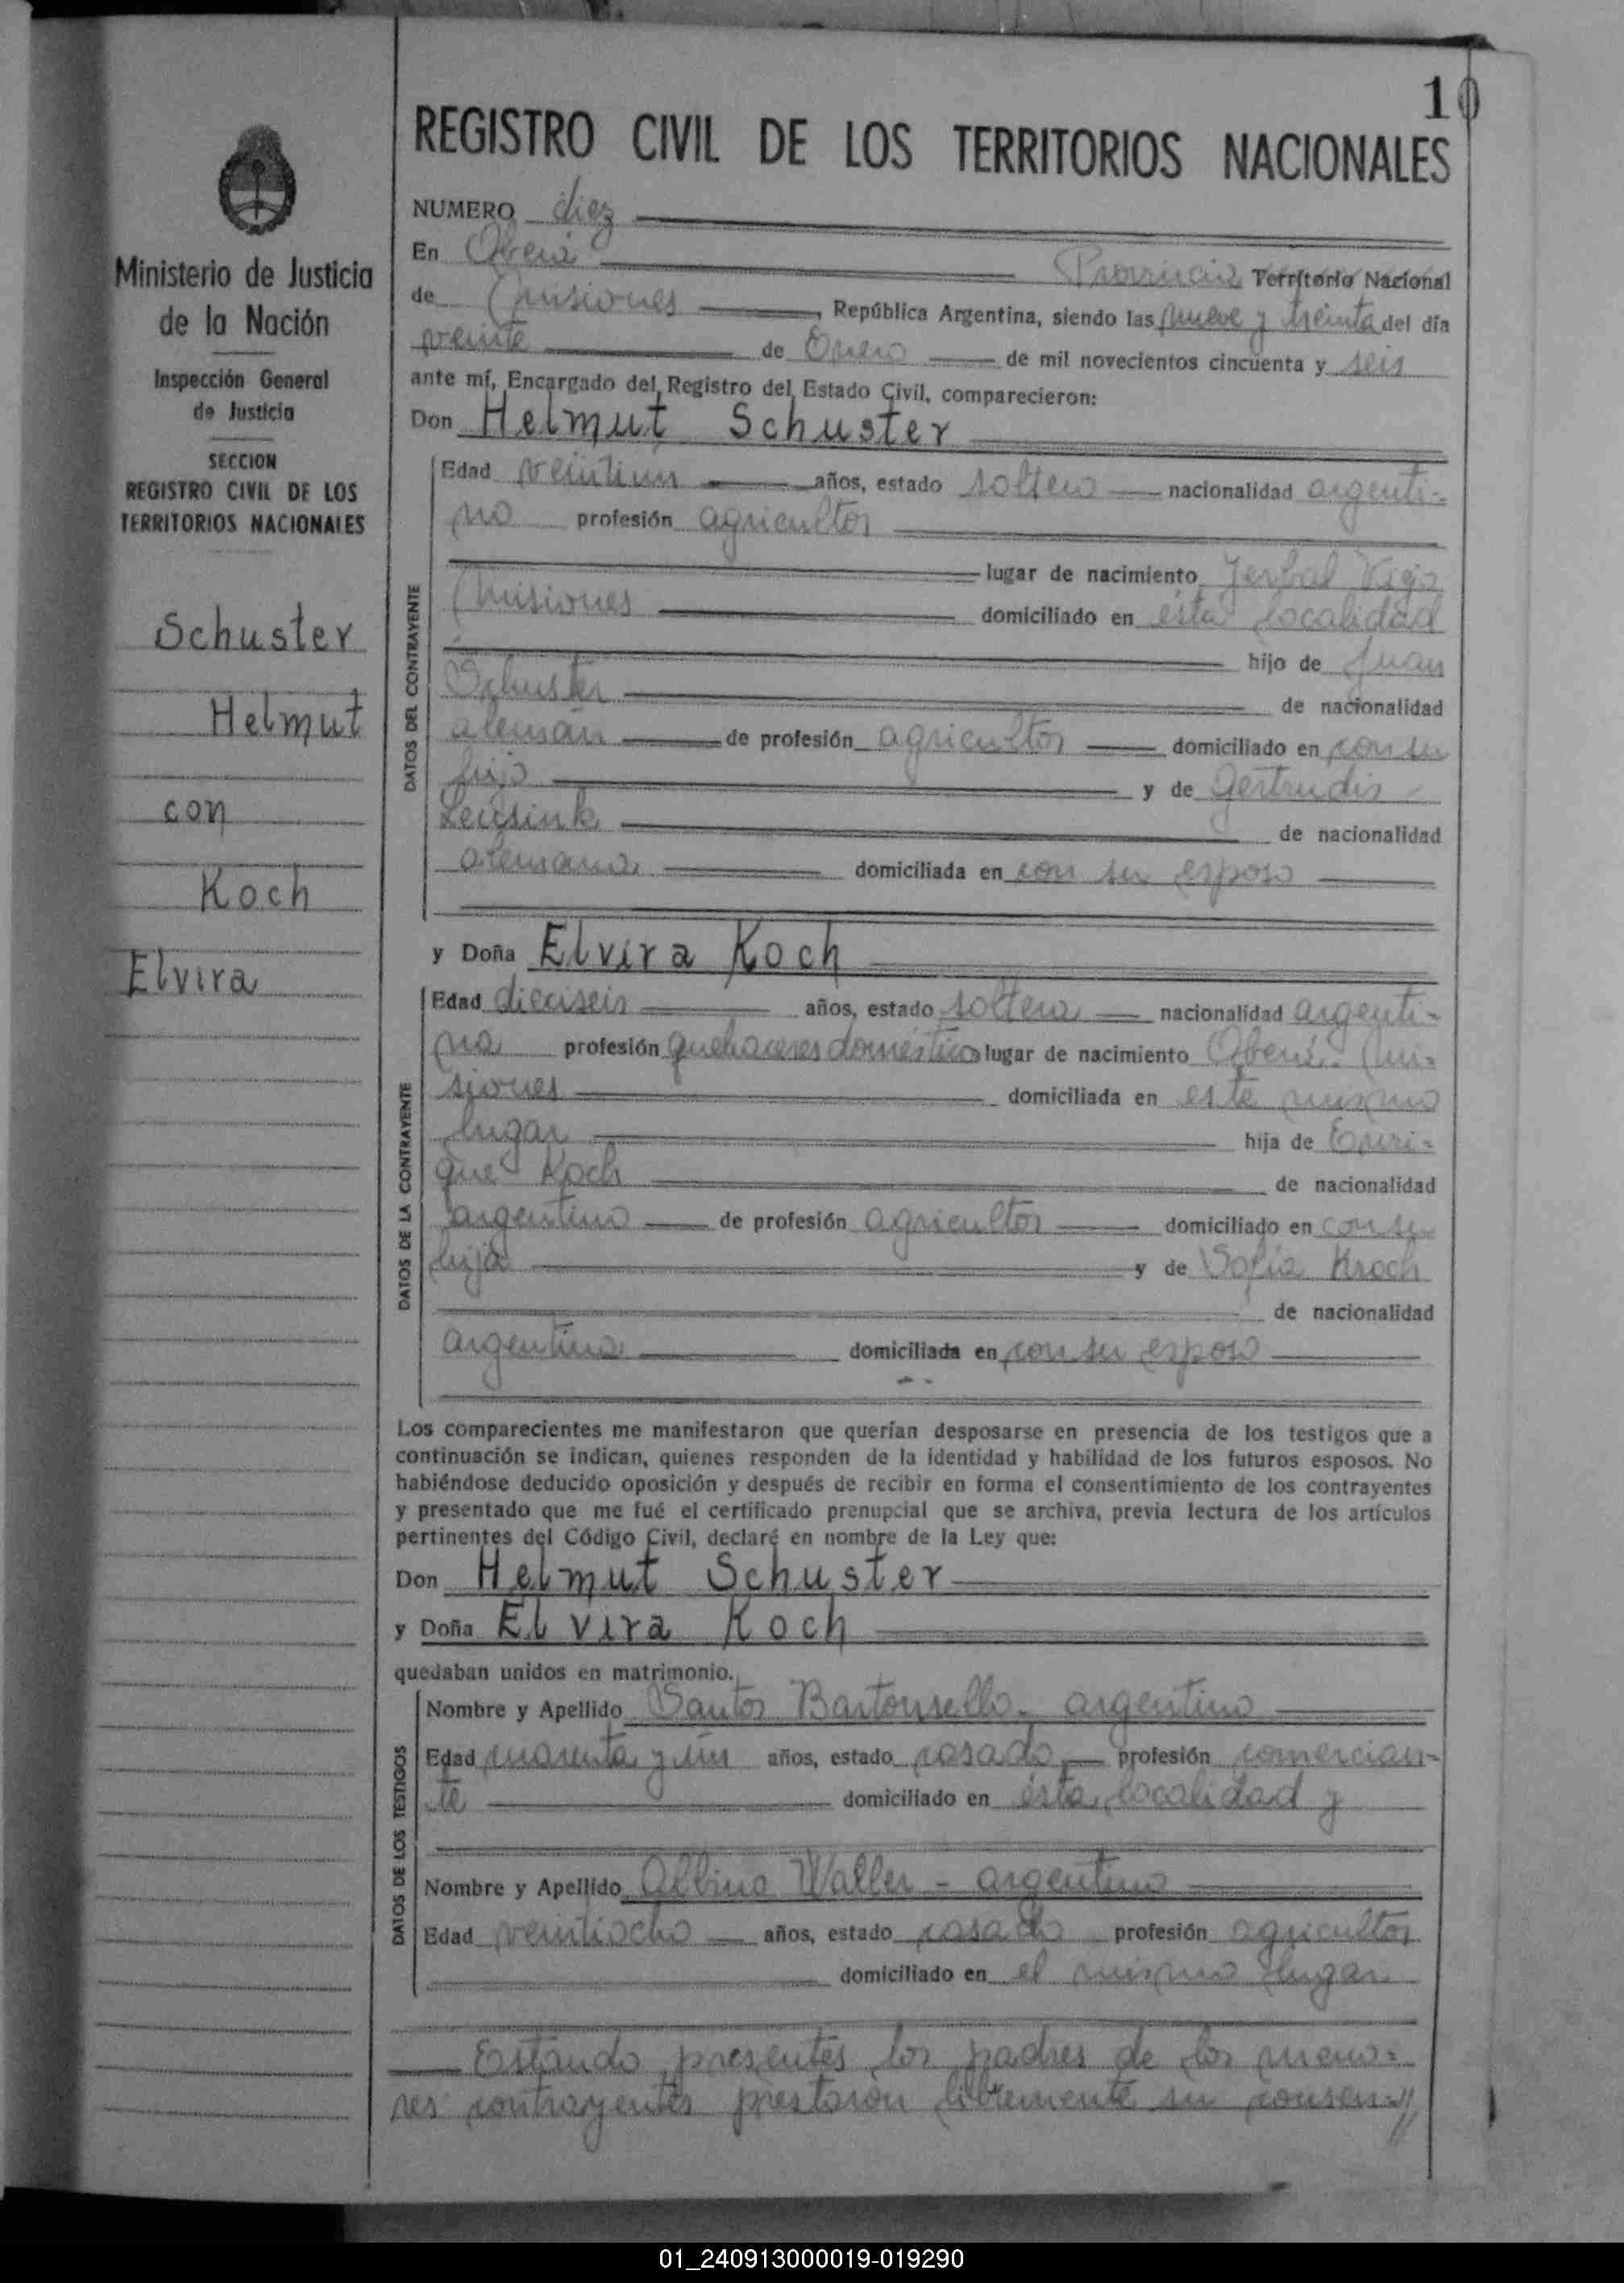 10
REGISTRO CIVIL DE LOS TERRITORIOS NACIONALES
Ministerio de Justicia
de la Nación
Inspección General
de Justicia
SECCION
REGISTRO CIVIL DE LOS
TERRITORIOS NACIONALES
Schuster
Helmut
con
Koch
Elvira
NUMERO diez
En Oberá Provincia Territorio Nacional
de Misiones, República Argentina, siendo las nueve y treinta del día
veinte de Enero de mil novecientos cincuenta y seis
ante mí, Encargado del Registro del Estado Civil, comparecieron:
Don Helmut Schuster
DATOS DEL CONTRAYENTE
Edad veintiun años, estado soltero nacionalidad argenti=
no profesión agricultor
lugar de nacimiento Yerbal Viejo
Misiones domiciliado en ésta localidad
hijo de Juan
Schuster de nacionalidad
alemán de profesión agricultor domiciliado en con su
hijo y de Gertrudis
de nacionalidad
alemana domiciliada en con su esposo
y Doña Elvira Koch
DATOS DE LA CONTRAYENTE
Edad dieciseis años, estado soltera nacionalidad argenti=
na profesión quehaceres domésticos lugar de nacimiento Oberá. Mi=
siones domiciliada en este mismo
lugar hija de Enri=
que Koch de nacionalidad
argentino de profesión agricultor domiciliado en con su
hija y de Sofía Kroch
de nacionalidad
argentina domiciliada en con su esposo
Los comparecientes me manifestaron que querían desposarse en presencia de los testigos que a
continuación se indican, quienes responden de la identidad y habilidad de los futuros esposos. No
habiéndose deducido oposición y después de recibir en forma el consentimiento de los contrayentes
y presentado que me fué el certificado prenupcial que se archiva, previa lectura de los artículos
pertinentes del Código Civil, declaré en nombre de la Ley que:
Don Helmut Schuster
y Doña Elvira Koch
quedaban unidos en matrimonio.
DATOS DE LOS TESTIGOS
Nombre y Apellido Santos - argentino
Edad cuarenta y un años, estado casado profesión comercian=
te domiciliado en ésta localidad y
Nombre y Apellido Albino Waller - argentino
Edad veintiocho años, estado casado profesión agricultor
domiciliado en el mismo lugar
Estando presentes los padres de los meno=
res contrayentes prestaron libremente su consen=//
01_240913000019-019290